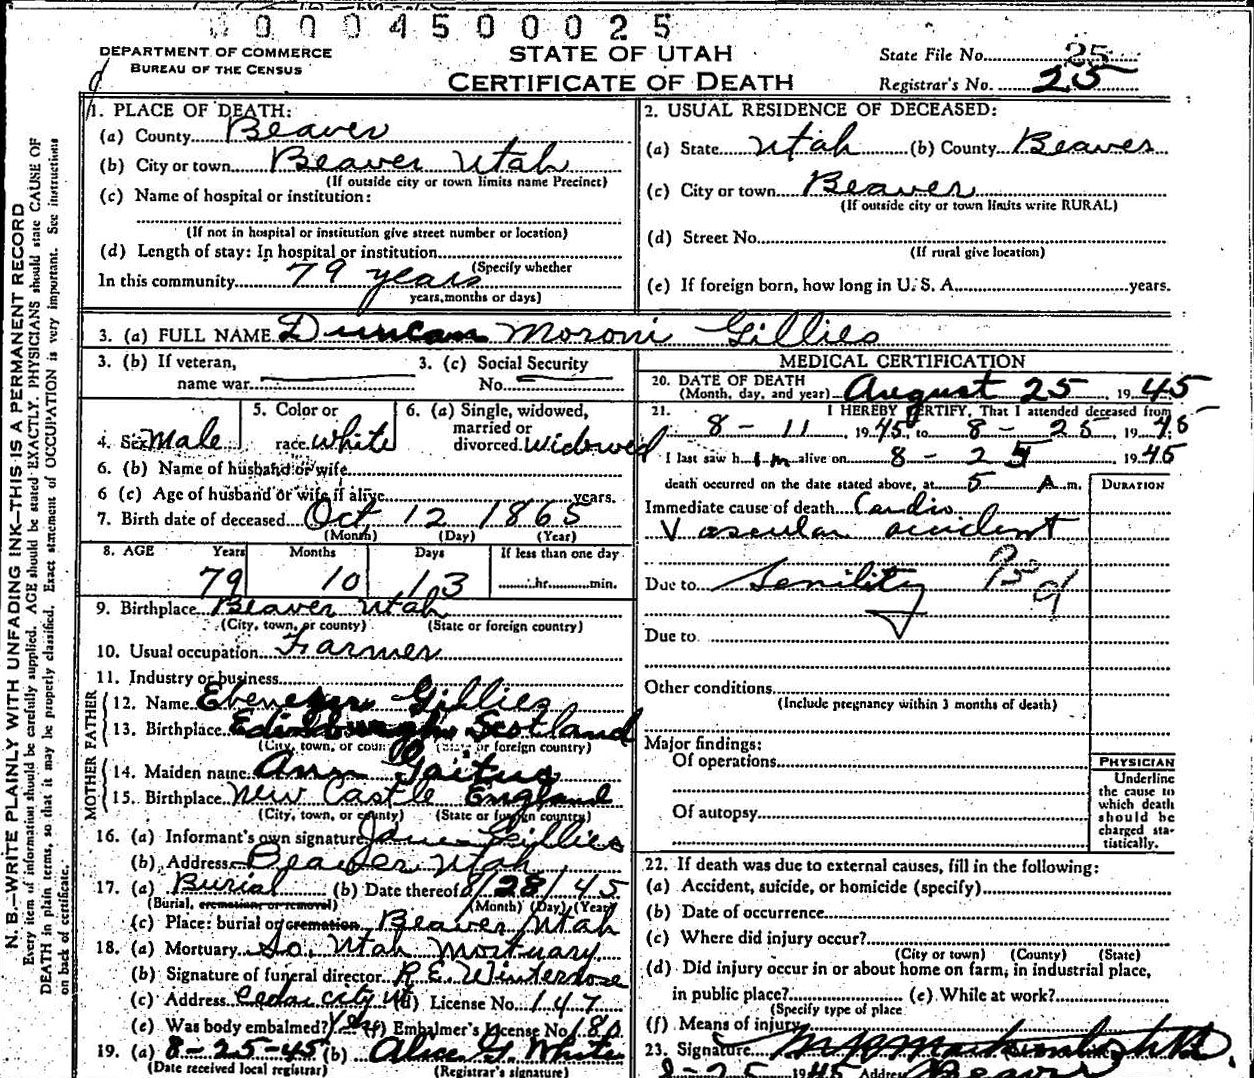 0004500025
DEPARTMENT OF COMMERCE
BUREAU OF THE CENSUS
STATE OF UTAH
CERTIFICATE OF DEATH
State File No. 25
Registrar's No. 25
N. B.—WRITE PLAINLY WITH UNFADING INK—THIS IS A PERMANENT RECORD
Every item of information should be carefully supplied. AGE should be stated EXACTLY. PHYSICIANS should state CAUSE OF
DEATH in plain terms, so that it may be properly classified. Exact statement of OCCUPATION is very important. See instructions
on back of certificate.
1. PLACE OF DEATH:
(a) County Beaver
(b) City or town Beaver Utah
(If outside city or town limits name Precinct)
(c) Name of hospital or institution:
(If not in hospital or institution give street number or location)
(d) Length of stay: In hospital or institution
(Specify whether
In this community 79 years
years, months or days)
2. USUAL RESIDENCE OF DECEASED:
(a) State Utah (b) County Beaver
(c) City or town Beaver
(If outside city or town limits write RURAL)
(d) Street No.
(If rural give location)
(e) If foreign born, how long in U. S. A. years.
3. (a) FULL NAME Duncan Moroni Gillies
3. (b) If veteran,
name war
3. (c) Social Security
No.
4. Sex Male
5. Color or
race White
6. (a) Single, widowed,
married or
divorced Widowed
6. (b) Name of husband or wife
6 (c) Age of husband or wife if alive years.
7. Birth date of deceased Oct 12 1865
(Month) (Day) (Year)
8. AGE Years Months Days If less than one day
79 10 13 hr. min.
9. Birthplace Beaver Utah
(City, town, or county) (State or foreign country)
10. Usual occupation Farmer
11. Industry or business
FATHER
12. Name Ebenezer Gillies
13. Birthplace Edinburgh Scotland
(City, town, or county) (State or foreign country)
MOTHER
14. Maiden name Ann
15. Birthplace New Castle England
(City, town, or county) (State or foreign country)
16. (a) Informant's own signature Gillies
(b) Address Beaver Utah
17. (a) Burial (b) Date thereof 8/28/45
(Burial, cremation or removal) (Month) (Day) (Year)
(c) Place: burial or cremation Beaver Utah
18. (a) Mortuary So. Utah Mortuary
(b) Signature of funeral director R.E. Winterrose
(c) Address Cedar City Ut (d) License No. 147
(e) Was body embalmed? Yes (f) Embalmer's License No. 180
19. (a) 8-25-45 (b) Alice G. White
(Date received local registrar) (Registrar's signature)
MEDICAL CERTIFICATION
20. DATE OF DEATH
(Month, day, and year) August 25, 1945
21. I HEREBY CERTIFY, That I attended deceased from
8-11, 1945, to 8-25, 1945
I last saw him alive on 8-25 1945
death occurred on the date stated above, at 5 A.m.
DURATION
Immediate cause of death Cardio
Vascular accident
Due to Senility
Due to
Other conditions
(Include pregnancy within 3 months of death)
Major findings:
Of operations
Of autopsy
PHYSICIAN
Underline
the cause to
which death
should be
charged sta-
tistically.
22. If death was due to external causes, fill in the following:
(a) Accident, suicide, or homicide (specify)
(b) Date of occurrence
(c) Where did injury occur?
(City or town) (County) (State)
(d) Did injury occur in or about home on farm, in industrial place,
in public place? (e) While at work?
(Specify type of place
(f) Means of injury
23. Signature
8-25 1945 Address Beaver